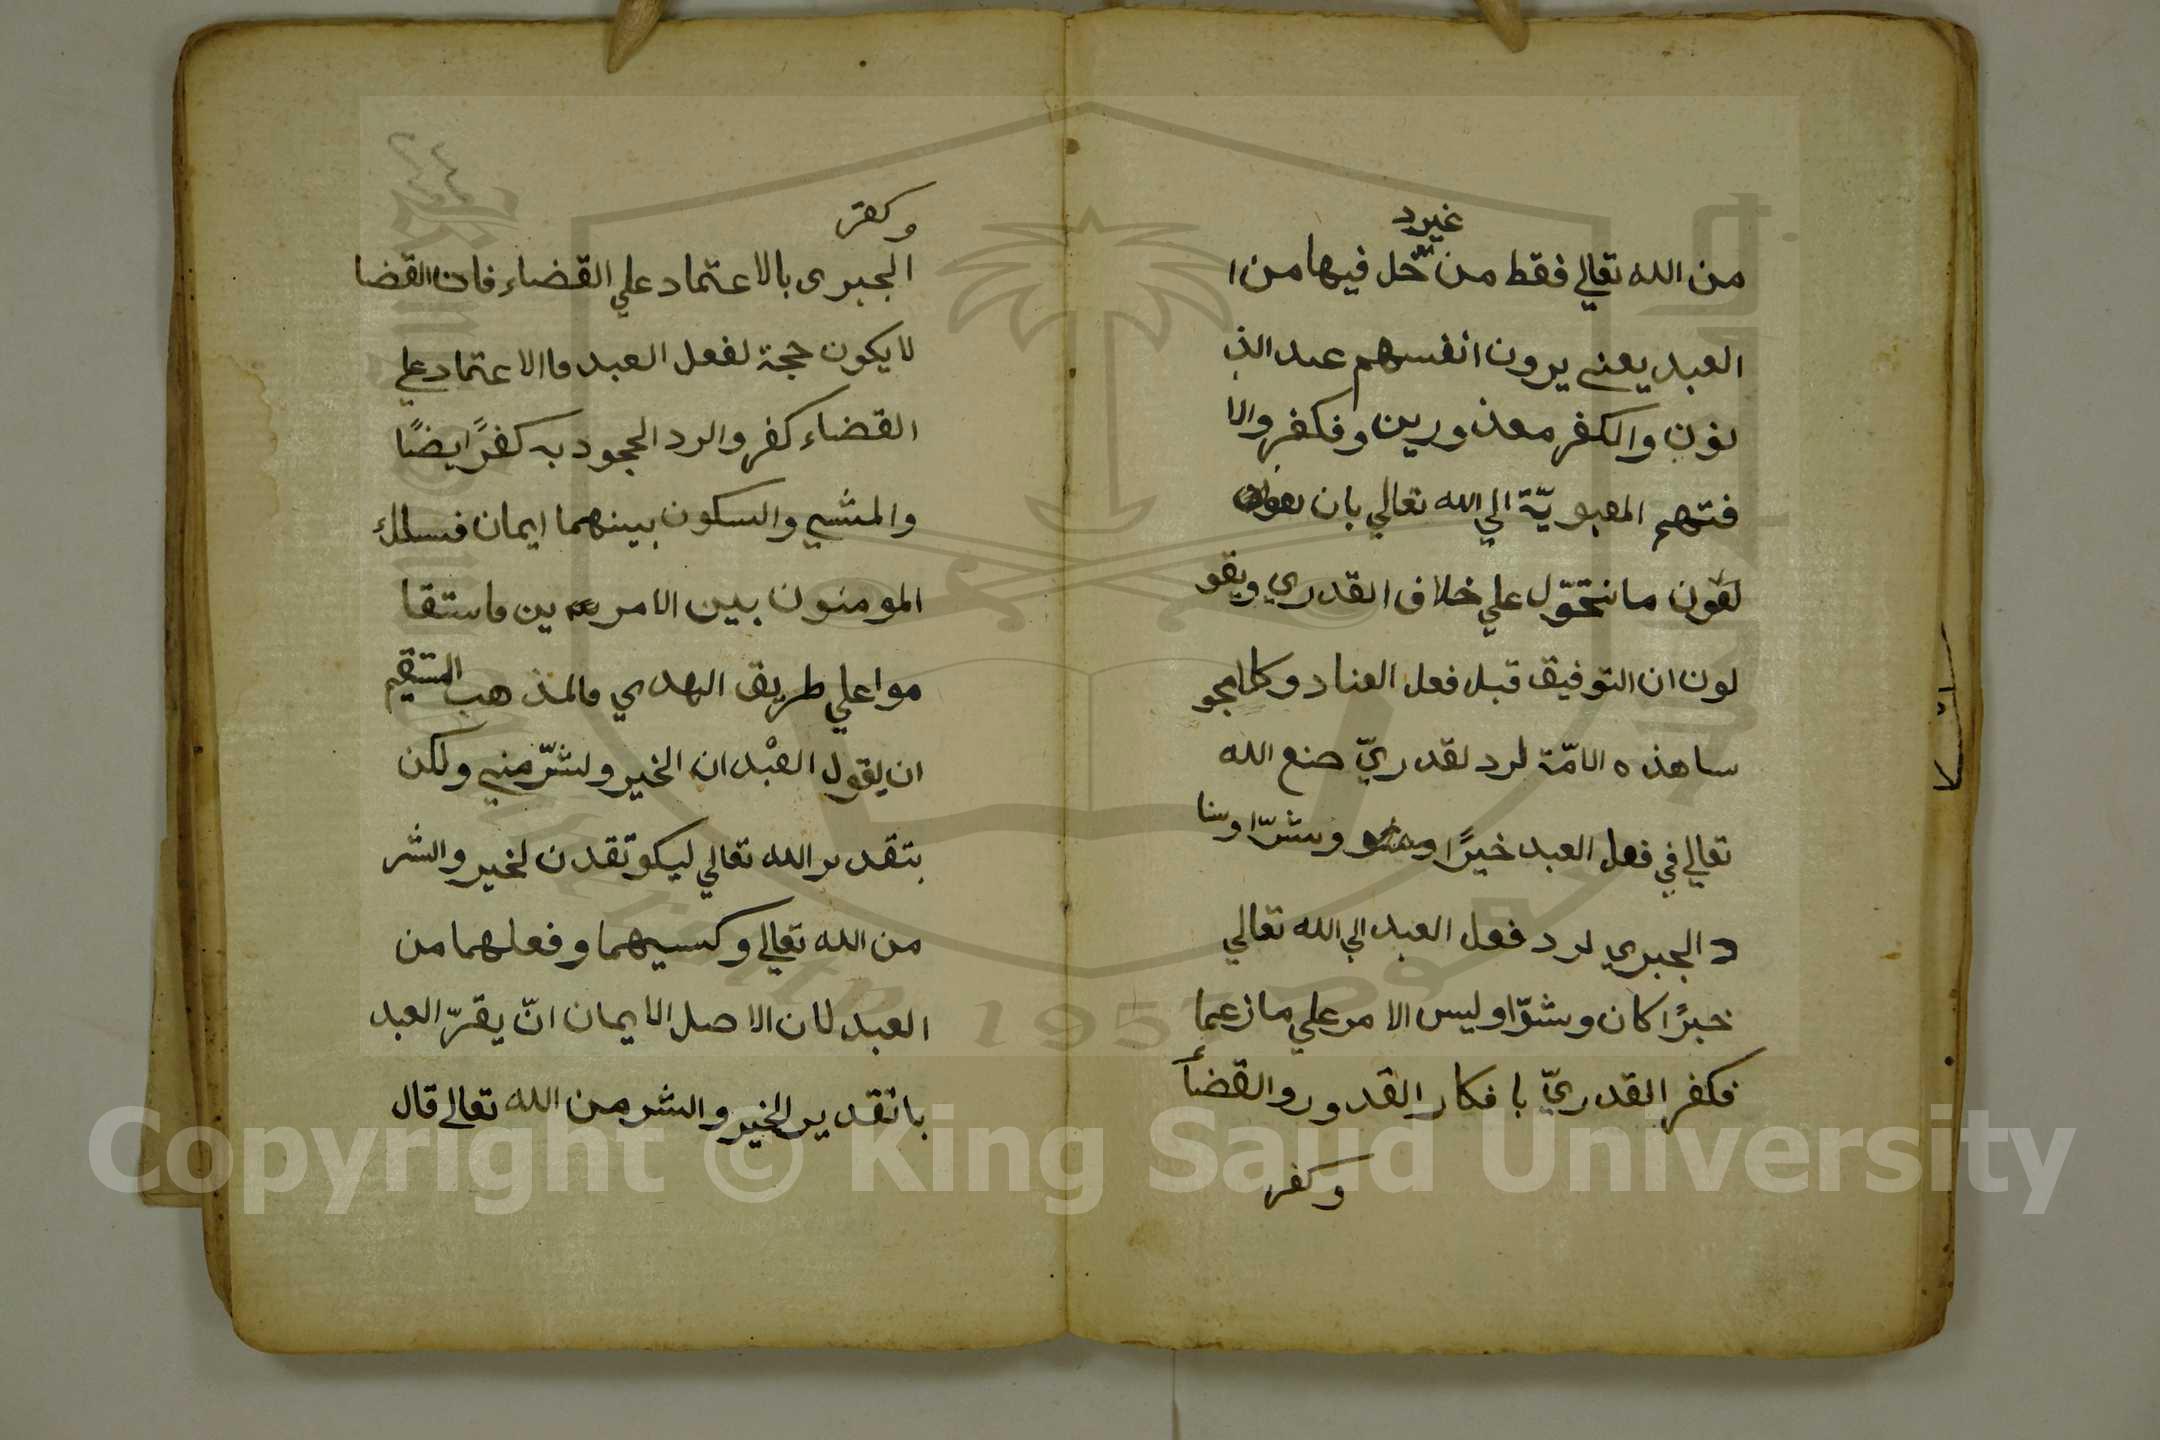 غيرد
من الله تعالي فقط من خل فيها من ا
العبد يعني يرون انفسهم عند الذ
نون والكفر معذورين وفكفر والا
فتهم المعبويّة الي الله تعالي بان
لقون ما نتحوّل علي خلاف القدري ويقو
لون ان التوفيق قبل فعل العناد وكلا مجو
سا هذه الامّة لرد لقدريّ صنع الله
تعالي في فعل العبد خيرًا وشرّا وسنا
د الجبري لرد فعل العبد الي الله تعالي
خيرًا كان وشرّا وليس الامر علي ما زعما
فكفر القدريّ با فكار القدور والقضأ
وكفر
وكفر
الجبرى بالاعتماد علي القضاء فان القضا
لا يكون حجة لفعل العبد فالاعتماد علي
القضاء كفر والرد الجحود به كفرًا ايضًا
والمشي والسكون بينهما ايمان فسلك
المومنون بين الامر ين فاستقا
موا علي طريق الهدي فالمذهب المستقيم
ان يقول العبْد ان الخير ولشرّ مني ولكن
بتقدير الله تعالي ليكو تقدن لخير والشر
من الله تعالي وكسبهما وفعلهما من
العبد لان الاصل الايمان انّ يقرّ العبد
باتقدير الخير والشر من الله تعالي قال
Copyright © King Saud University
1957